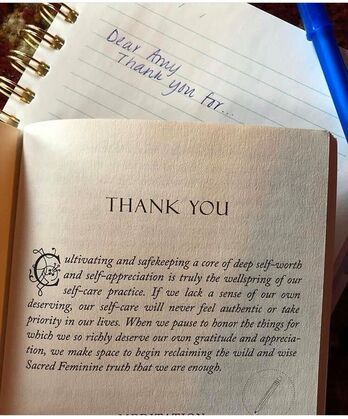 Dear Amy
Thank you for...
THANK YOU
Cultivating and safekeeping a core of deep self-worth
and self-appreciation is truly the wellspring of our
self-care practice. If we lack a sense of our own
deserving, our self-care will never feel authentic or take
priority in our lives. When we pause to honor the things for
which we so richly deserve our own gratitude and apprecia-
tion, we make space to begin reclaiming the wild and wise
Sacred Feminine truth that we are enough.
MEDITATION